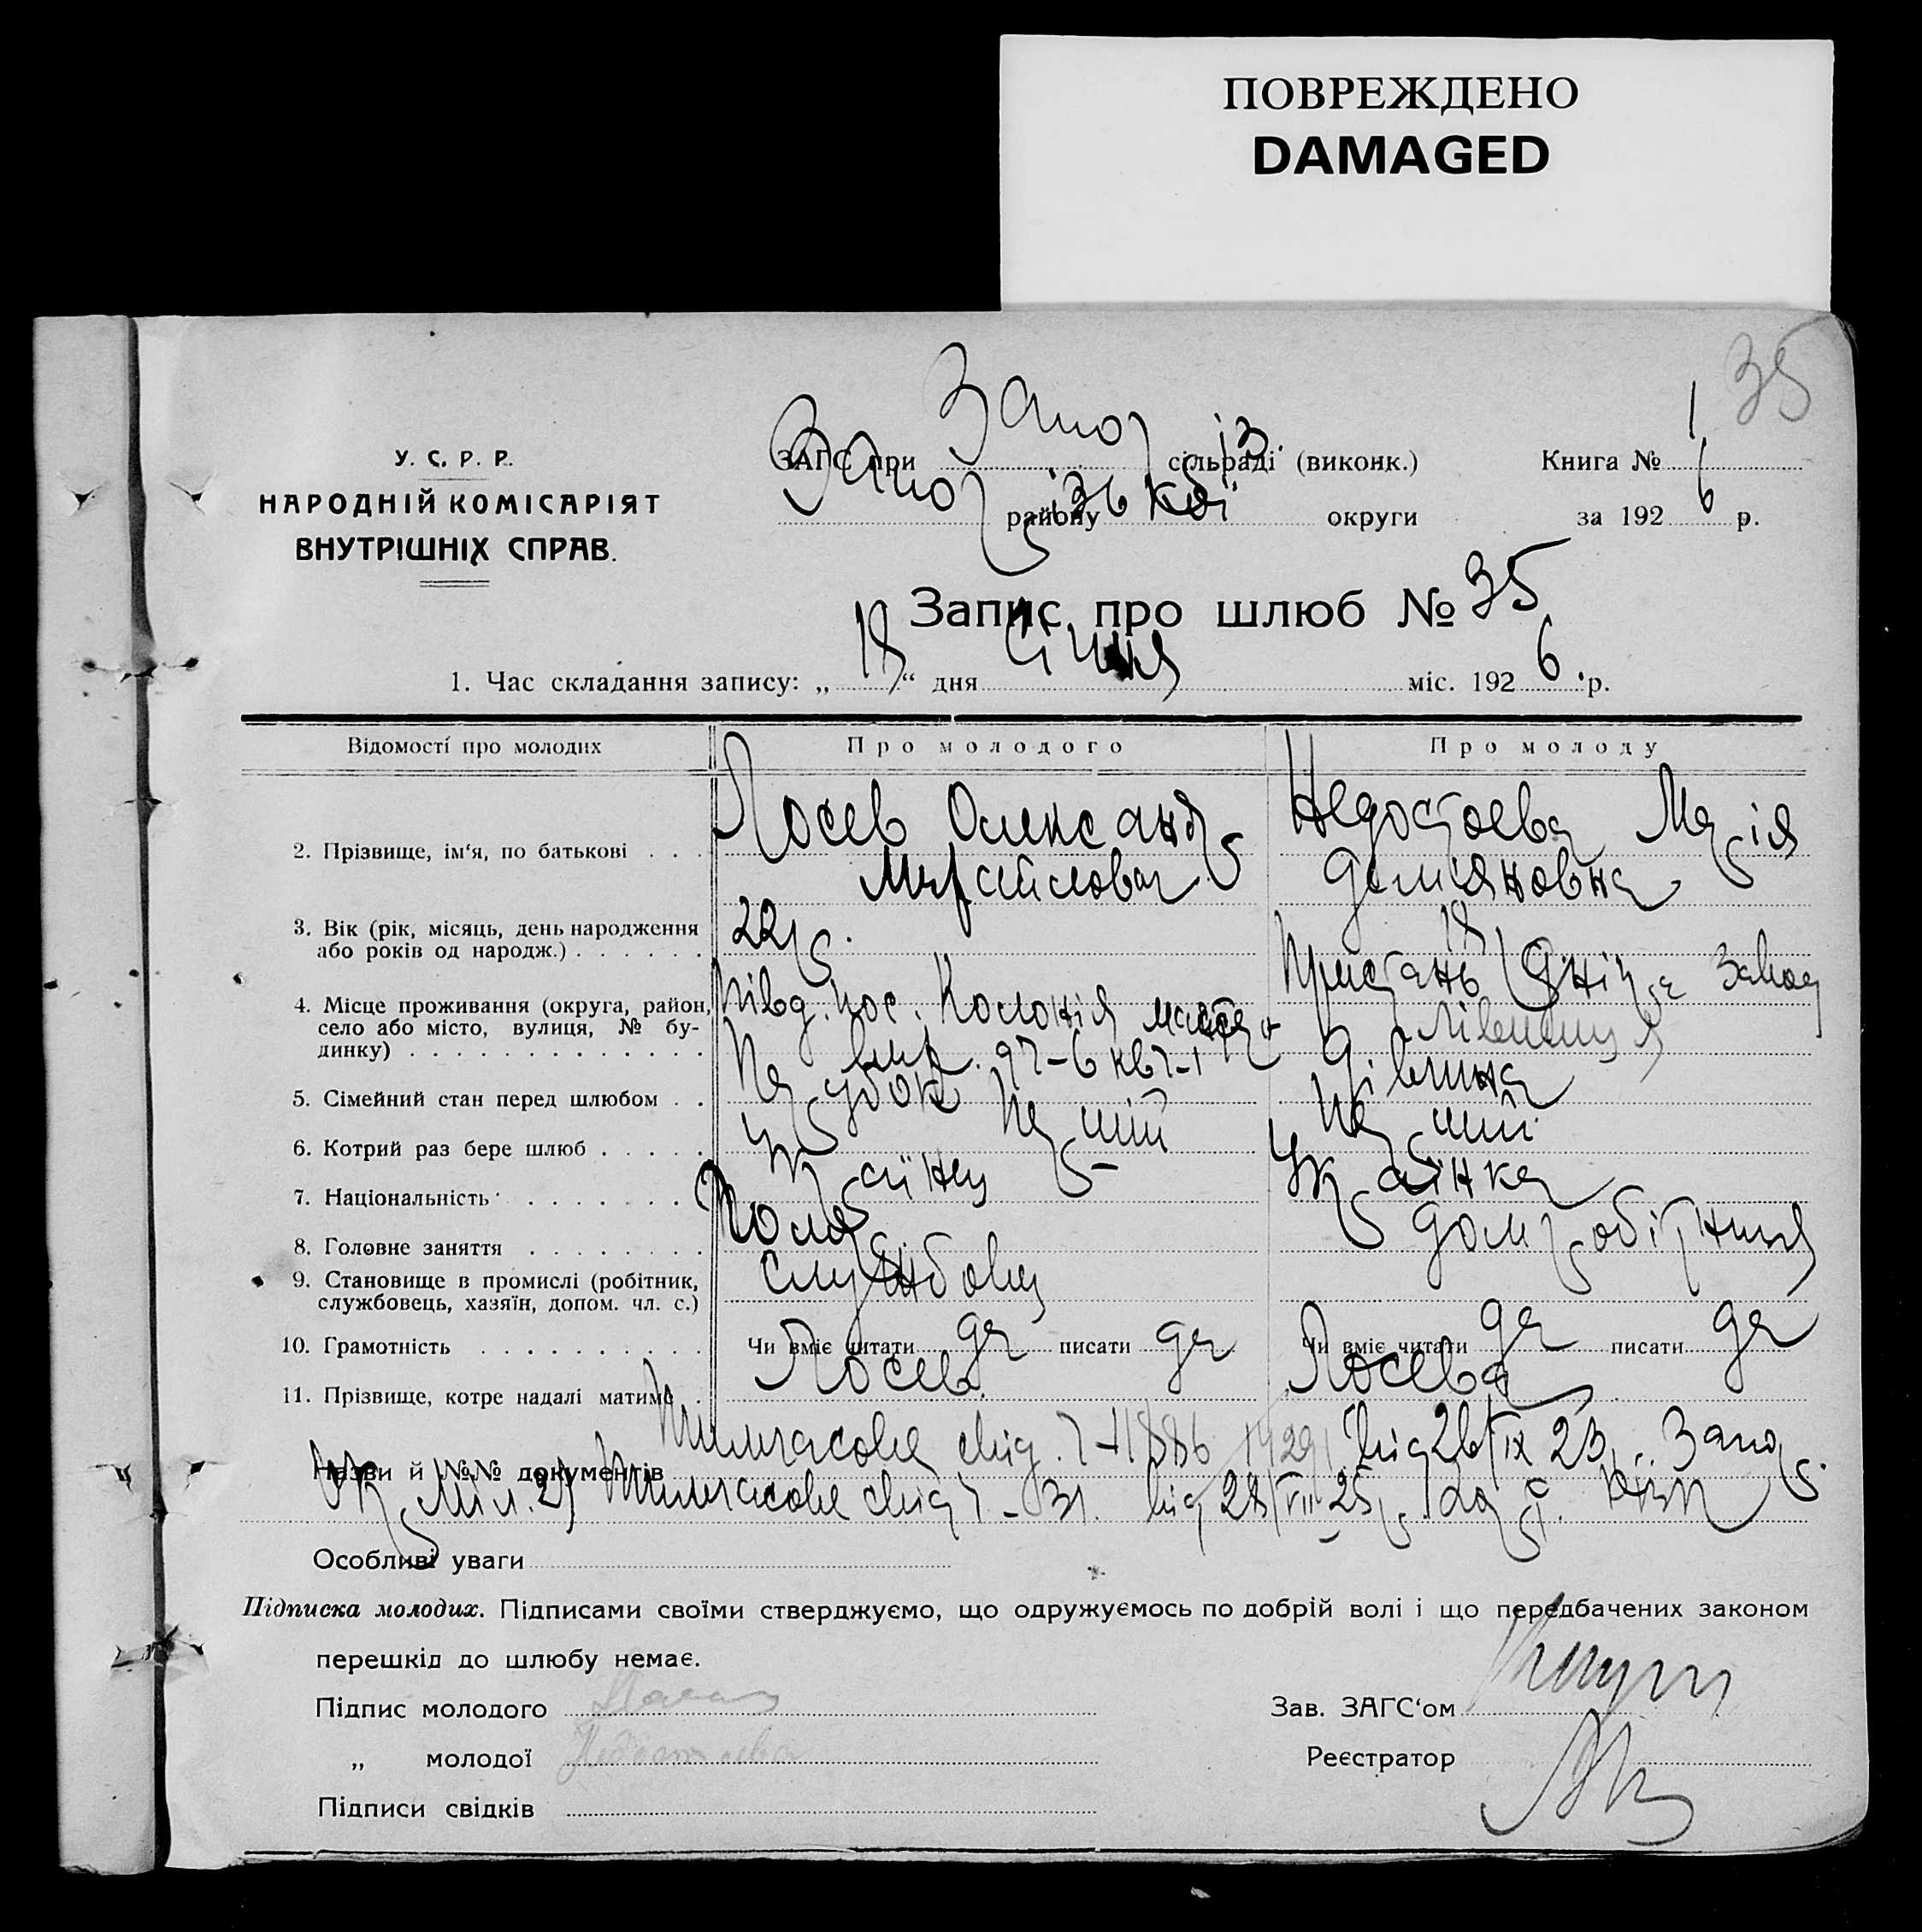 ПОВРЕЖДЕНО
DAMAGED
35
У. С. Р. Р.
НАРОДНІЙ КОМІСАРІЯТ
ВНУТРІШНІХ СПРАВ.
ЗАГС при Запоріз. сільраді (виконк.)
Книга № 1
району Запорізької округи
за 1926 р.
Запис про шлюб № 35
1. Час складання запису: „18“ дня Січня міс. 1926 р.
Відомості про молодих Про молодого Про молоду
2. Прізвище, ім‘я, по батькові . . . Лосев Олександр Недостоева Марія
Деміяновна
3. Вік (рік, місяць, день народження
або років од народж.) . . . . . . 22 р. 18
4. Місце проживання (округа, район, Півд. пос. Колонія Пристань Дніпра
село або місто, вулиця, № бу-
динку) . . . . . . . . . . . . .
5. Сімейний стан перед шлюбом . . Парубок Дівчина
6. Котрий раз бере шлюб . . . . . Перший Перший
7. Національність . . . . . . . Українец Українка
8. Головне заняття . . . . . . . . домробітниця
9. Становище в промислі (робітник,
службовець, хазяїн, допом. чл. с.) службовец
10. Грамотність . . . . . . . . . . Чи вміє читати да писати да Чи вміє читати да писати да
11. Прізвище, котре надалі матиме . Лосев Лосева
Назви й №№ документів Тимчасове свід. від 26/IX 23 р. Запор.
Укр. Міл. 2) Тимчасове свід 31. від 28/VII 25 р.
Особливі уваги
Підписка молодих. Підписами своїми стверджуємо, що одружуємось по добрій волі і що передбачених законом
перешкід до шлюбу немає.
Підпис молодого
Зав. ЗАГС‘ом
„ молодої
Реєстратор
Підписи свідків